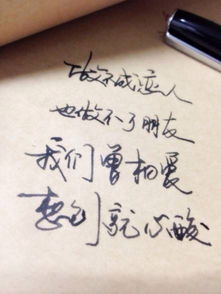 做不成恋人
也做不了朋友
我们曾相爱
想到就心酸